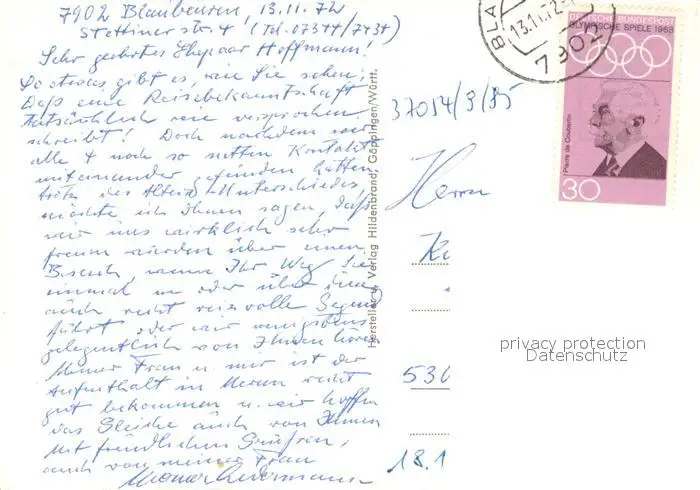 7902 Blaubeuren, 13.11.72
Stettinerstr. 4 (Tel. 07344/7434)
Sehr geehrtes Ehepaar Hoffmann!
So etwas gibt es, wie Sie sehen;
Daß eine Reisebekanntschaft
tatsächlich wie versprochen
schreibt! Doch nachdem wir
alle 4 noch so netten Kontakt
miteinander gefunden hatten
trotz des Alters-Unterschiedes,
möchte ich Ihnen sagen, daß
wir uns wirklich sehr
freuen würden über einen
Besuch, wenn Ihr Weg Sie
einmal in oder über
auch recht reizvolle Gegend
führt oder wir wenigstens
gelegentlich von Ihnen hören
Meiner Frau u. mir ist der
Aufenthalt in Meran recht
gut bekommen u. wir hoffen
das Gleiche auch von Ihnen
Mit freundlichen Grüßen,
auch von meiner Frau
Hersteller u. Verlag Hildenbrand, Göppingen/Württ.
37054/9/85
Herrn
530
18.1
BLA
13.11.72
7902
DEUTSCHE BUNDESPOST
OLYMPISCHE SPIELE 1968
Pierre de Coubertin
30
privacy protection
Datenschutz